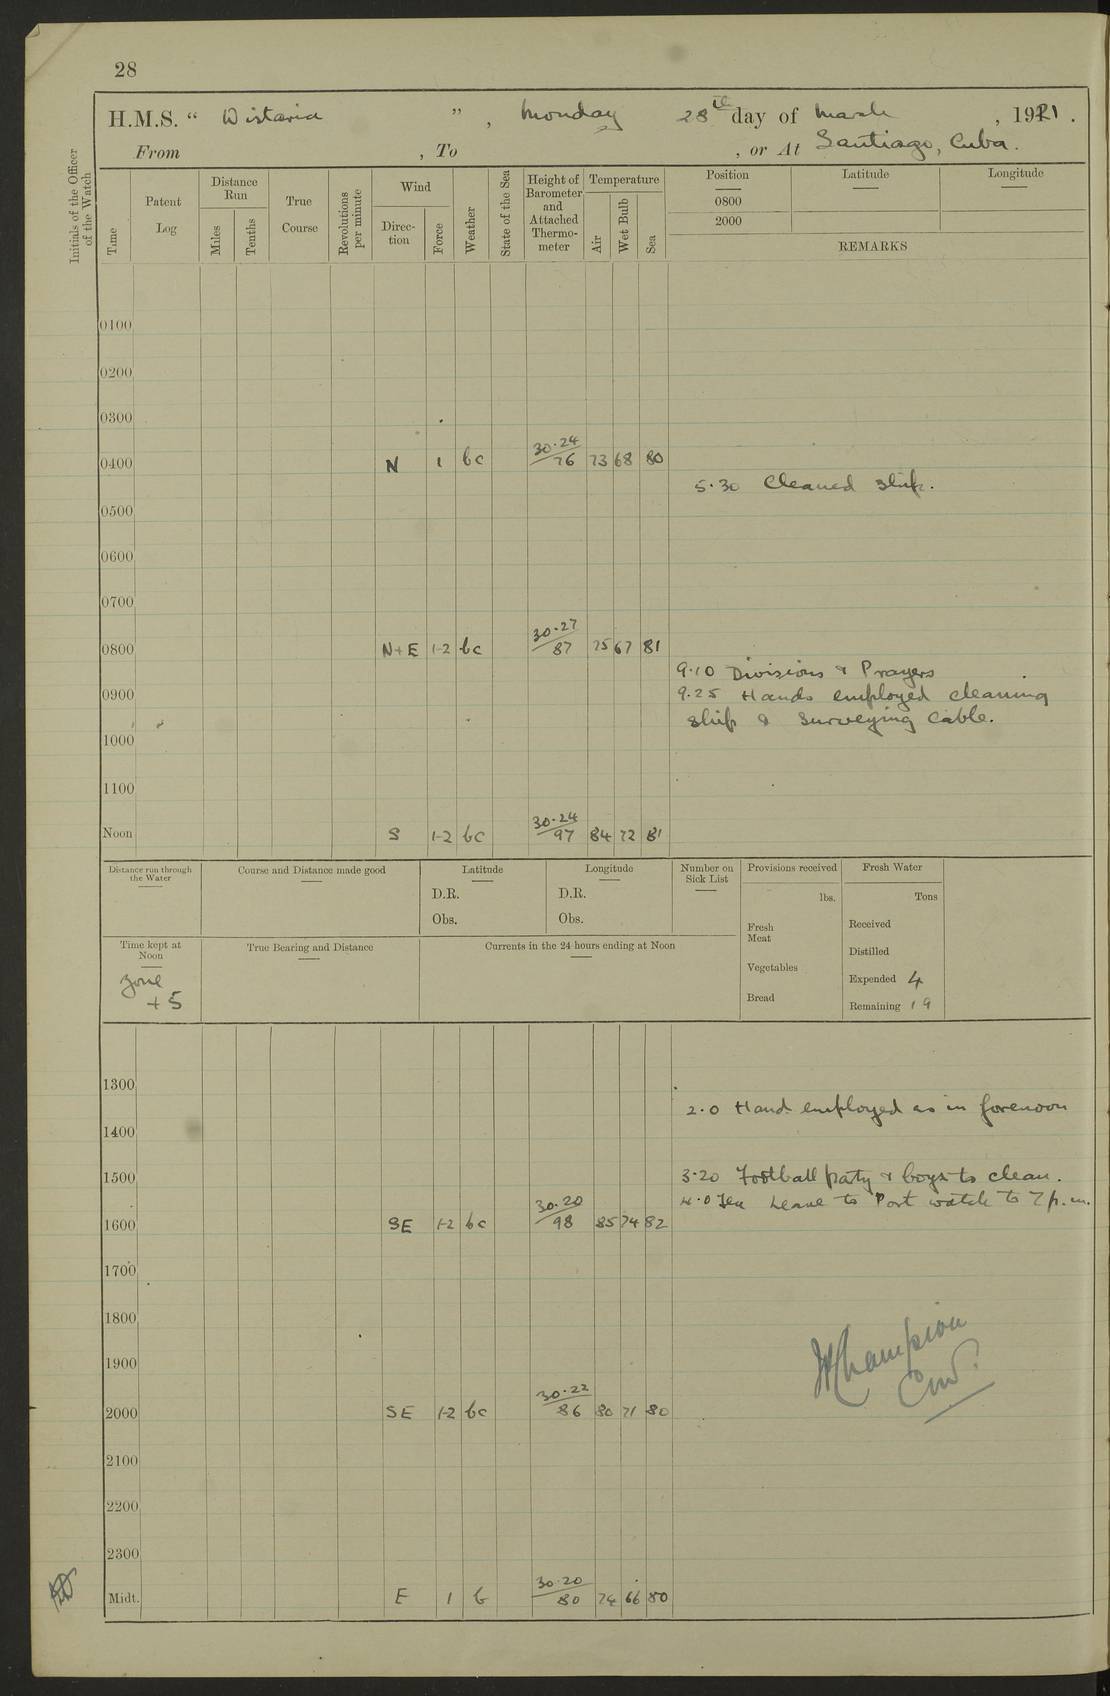 28
H.M.S. “ Wistaria ” , Monday 28th day of March , 1921 .
From , To , or At Santiago, Cuba.
Initials of the Officer of the Watch
Time
Patent Log
Distance Run
Miles
Tenths
True Course
Revolutions per minute
Wind
Direction
Force
Weather
State of the Sea
Height of Barometer and Attached Thermometer
Temperature
Air
Wet Bulb
Sea
Position Latitude Longitude
0800
2000
REMARKS
0100
0200
0300
0400 N 1 bc 30.24/76 73 68 80
5.30 Cleaned ship.
0500
0600
0700
0800 N+E 1-2 bc 30.27/87 75 67 81
9.10 Divisions & Prayers
0900 9.25 Hands employed cleaning
ship & surveying cable.
1000
1100
Noon S 1-2 bc 30.24/97 84 72 81
Distance run through the Water
Course and Distance made good
Latitude
D.R.
Obs.
Longitude
D.R.
Obs.
Number on Sick List
Provisions received
lbs.
Fresh Meat
Vegetables
Bread
Fresh Water
Tons
Received
Distilled
Expended 4
Remaining 19
Time kept at Noon
Zone
+5
True Bearing and Distance
Currents in the 24 hours ending at Noon
1300
2.0 Hands employed as in forenoon
1400
1500 3.20 Football party & boys to clean.
4.0 Tea Leave to Port watch to 7 p.m.
1600 SE 1-2 bc 30.20/98 85 74 82
1700
1800
1900
WChampion
Cmdr.
2000 SE 1-2 bc 30.22/86 80 71 80
2100
2200
2300
Midt. E 1 b 30.20/80 74 66 80